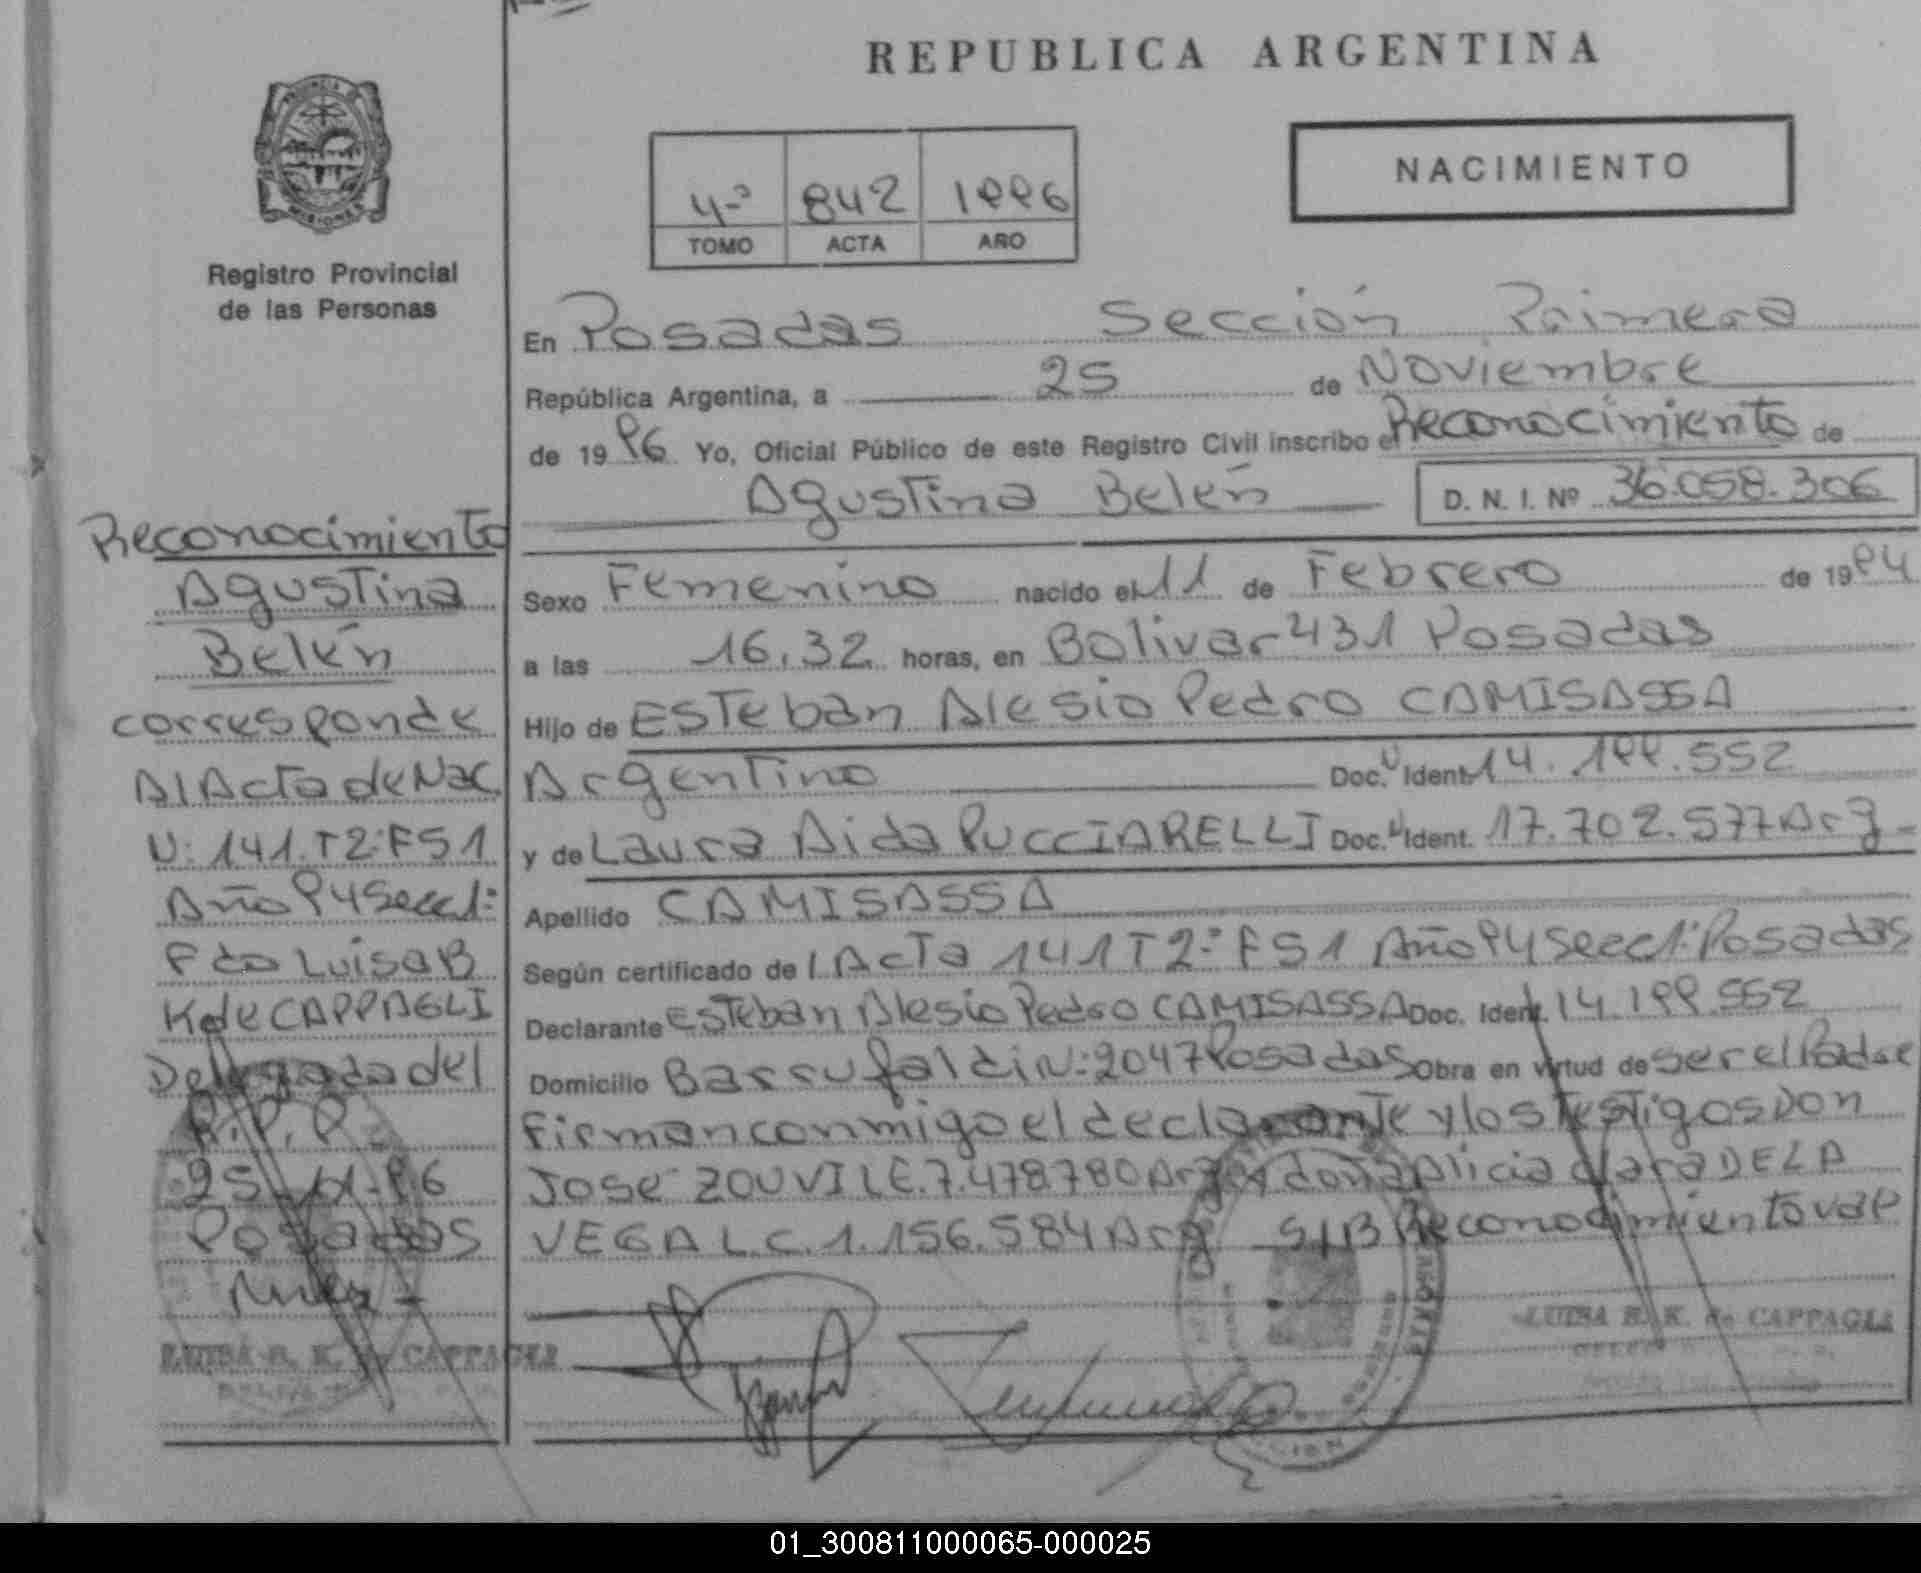 REPUBLICA ARGENTINA
PROVINCIA DE
MISIONES
Registro Provincial
de las Personas
4º 842 1996
TOMO ACTA AÑO
NACIMIENTO
En Posadas Sección Primera
República Argentina, a 25 de Noviembre
de 1996 Yo, Oficial Público de este Registro Civil inscribo el Reconocimiento de
Agustina Belén D. N. I. Nº 36.058.306
Sexo Femenino nacido el 11 de Febrero de 1994
a las 16,32 horas, en Bolivar 431 Posadas
Hijo de Esteban Alesio Pedro CAMISASSA
Argentino Doc. Ident. 14.199.552
y de Laura Aida PUCCIARELLI Doc. Ident. 17.702.577 Arg
Apellido CAMISASSA
Según certificado de l Acta 141 T2º F51 Año 94 Secc 1º Posadas
Declarante Esteban Alesio Pedro CAMISASSA Doc. Ident. 14.199.552
Domicilio Barrufaldi N: 2047 Posadas Obra en virtud de ser el Padre
Firman conmigo el declarante y los testigos Don
José ZOUVI L.E. 7.478780 Arg y doña Alicia Clara DE LA
VEGA L.C. 1.156.584 Arg S/B Reconocimiento vale
LUISA B. K. de CAPPAGLI
Reconocimiento
Agustina
Belén
corresponde
Al Acta de Nac
N: 141. T2: F51
Año 94 Secc 1:
Fdo Luisa B
K de CAPPAGLI
Delegada del
R.P.P.
25-11-96
Posadas
LUISA B. K. de CAPPAGLI
01_300811000065-000025